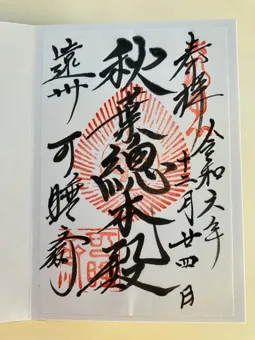 奉拜
令和六年
十二月廿四日
秋葉總本殿
遠州
可睡齋